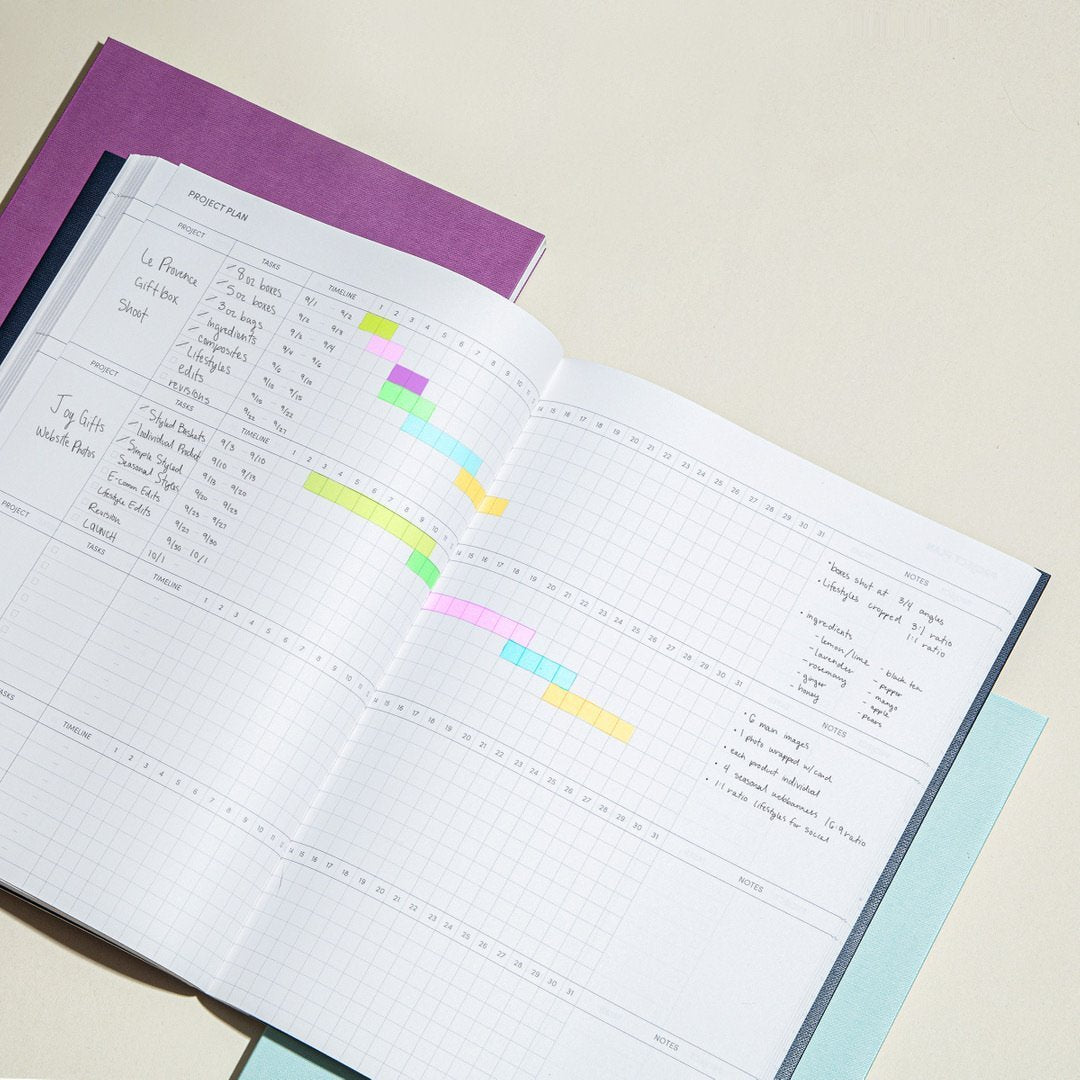 PROJECT PLAN
PROJECT TASKS TIMELINE 1 2 3 4 5 6 7 8 9 10 11
Le Provence
Gift Box
Shoot
8 oz boxes 9/1 9/2
5 oz boxes 9/2 - 9/3
3 oz bags 9/3 - 9/4
ingredients 9/4 - 9/6
composites 9/6 - 9/10
Lifestyles 9/10 - 9/15
edits 9/15 - 9/22
revisions 9/22 - 9/27
14 15 16 17 18 19 20 21 22 23 24 25 26 27 28 29 30 31
NOTES
•boxes shot at 3/4 angles
•Lifestyles cropped 3:1 ratio
1:1 ratio
• ingredients
- lemon/lime - black tea
- lavender - pepper
- rosemary - mango
- ginger - apple
- honey - pears
PROJECT TASKS TIMELINE 1 2 3 4 5 6 7 8 9 10 11
Joy Gifts
Website Photos
Styled Baskets 9/3 9/10
Individual Product 9/10 - 9/13
Simple Styled 9/13 - 9/20
Seasonal Styles 9/20 - 9/23
E-comm Edits 9/23 - 9/27
Lifestyle Edits 9/27 - 9/30
Revision 9/30 10/1
LAUNCH 10/1
14 15 16 17 18 19 20 21 22 23 24 25 26 27 28 29 30 31
NOTES
• 6 main images
• 1 photo wrapped w/card
• each product individual
• 4 seasonal webbanners 16:9 ratio
• 1:1 ratio lifestyles for social
PROJECT TASKS TIMELINE 1 2 3 4 5 6 7 8 9 10 11
14 15 16 17 18 19 20 21 22 23 24 25 26 27 28 29 30 31
NOTES
TIMELINE 1 2 3 4 5 6 7 8 9 10 11
14 15 16 17 18 19 20 21 22 23 24 25 26 27 28 29 30 31
NOTES